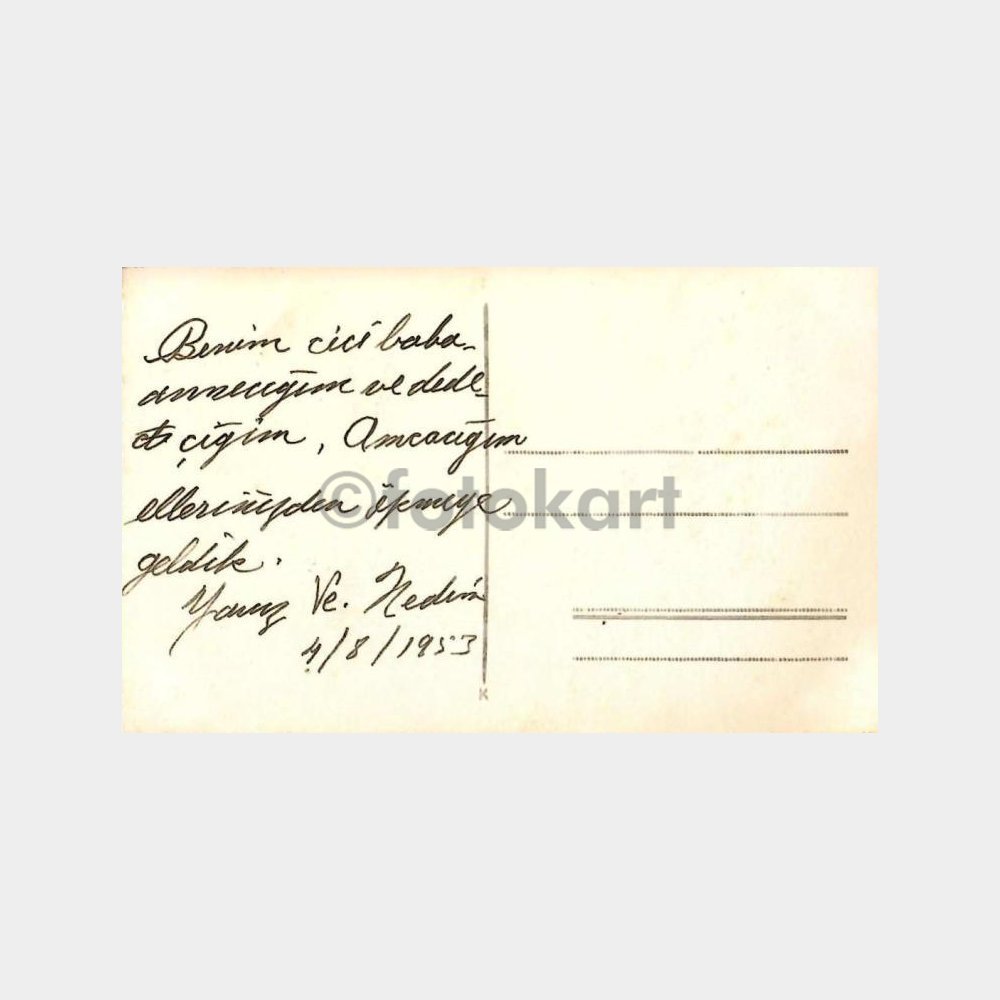 Benim cici baba-
annecığım ve dede-
çiğim, Amcacığım
ellerinizden öpmeye
geldik.
Yavuz Ve. Nedim
4/8/1953
©fotokart
K